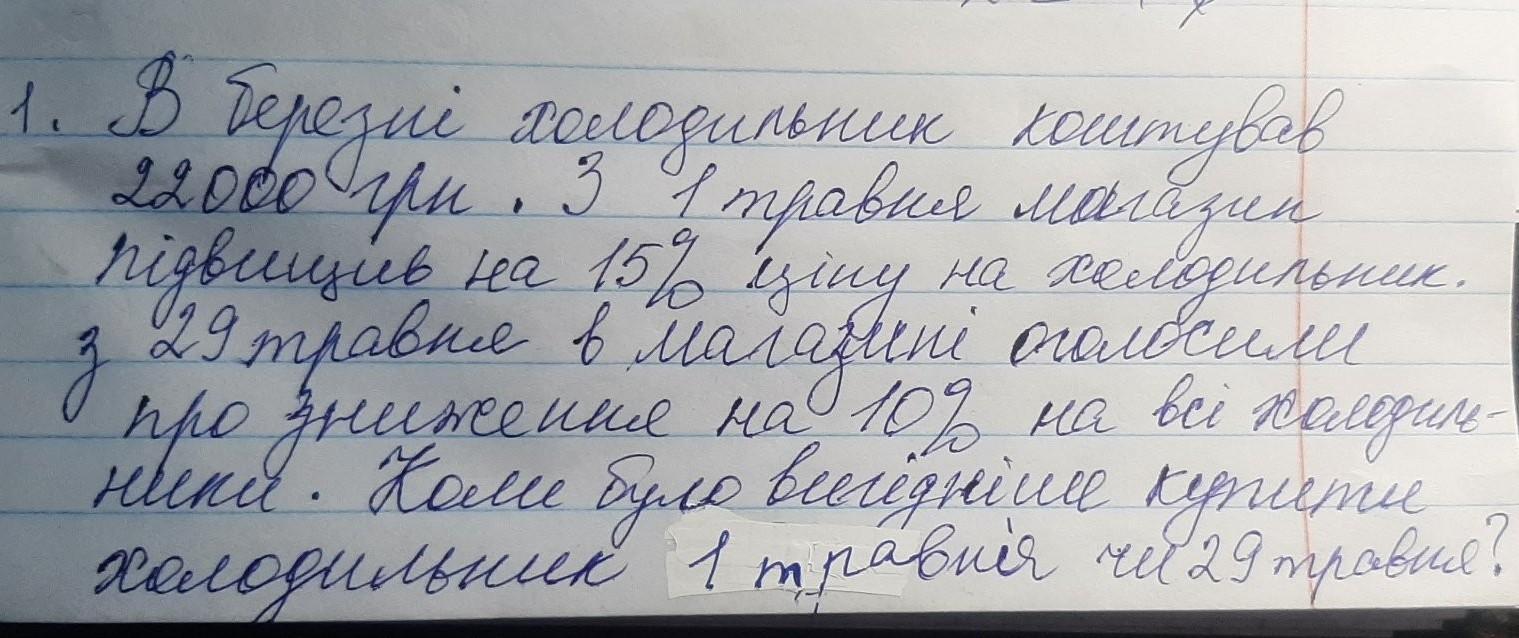 1. В березні холодильник коштував
22000 грн. З 1 травня магазин
підвищив на 15% ціну на холодильник.
з 29 травня в магазині оголосили
про зниження на 10% на всі холодиль-
ники. Коли було вигідніше купити
холодильник 1 травня чи 29 травня?